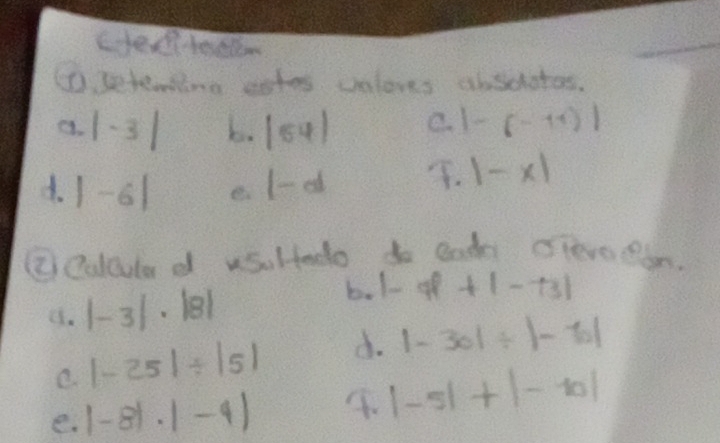 ① Determina estos valores absolutos.
a. |-3| b. |54| c. |-(-11)|
d. |-6| e. |-d f. |-x|
② Calcular el resultado de cada operación.
a. |-3| · |8| b. |-9| + |-13|
c. |-25| ÷ |5| d. |-30| ÷ |-10|
e. |-8| · |-9| f. |-5| + |-10|